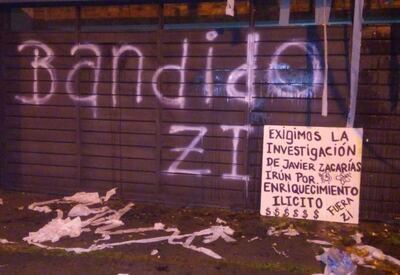 Bandido
ZI
EXIGIMOS LA
INVESTIGACIÓN
DE JAVIER ZACARÍAS
IRÚN POR
ENRIQUECIMIENTO
ILICITO FUERA
$$$$$$ ZI